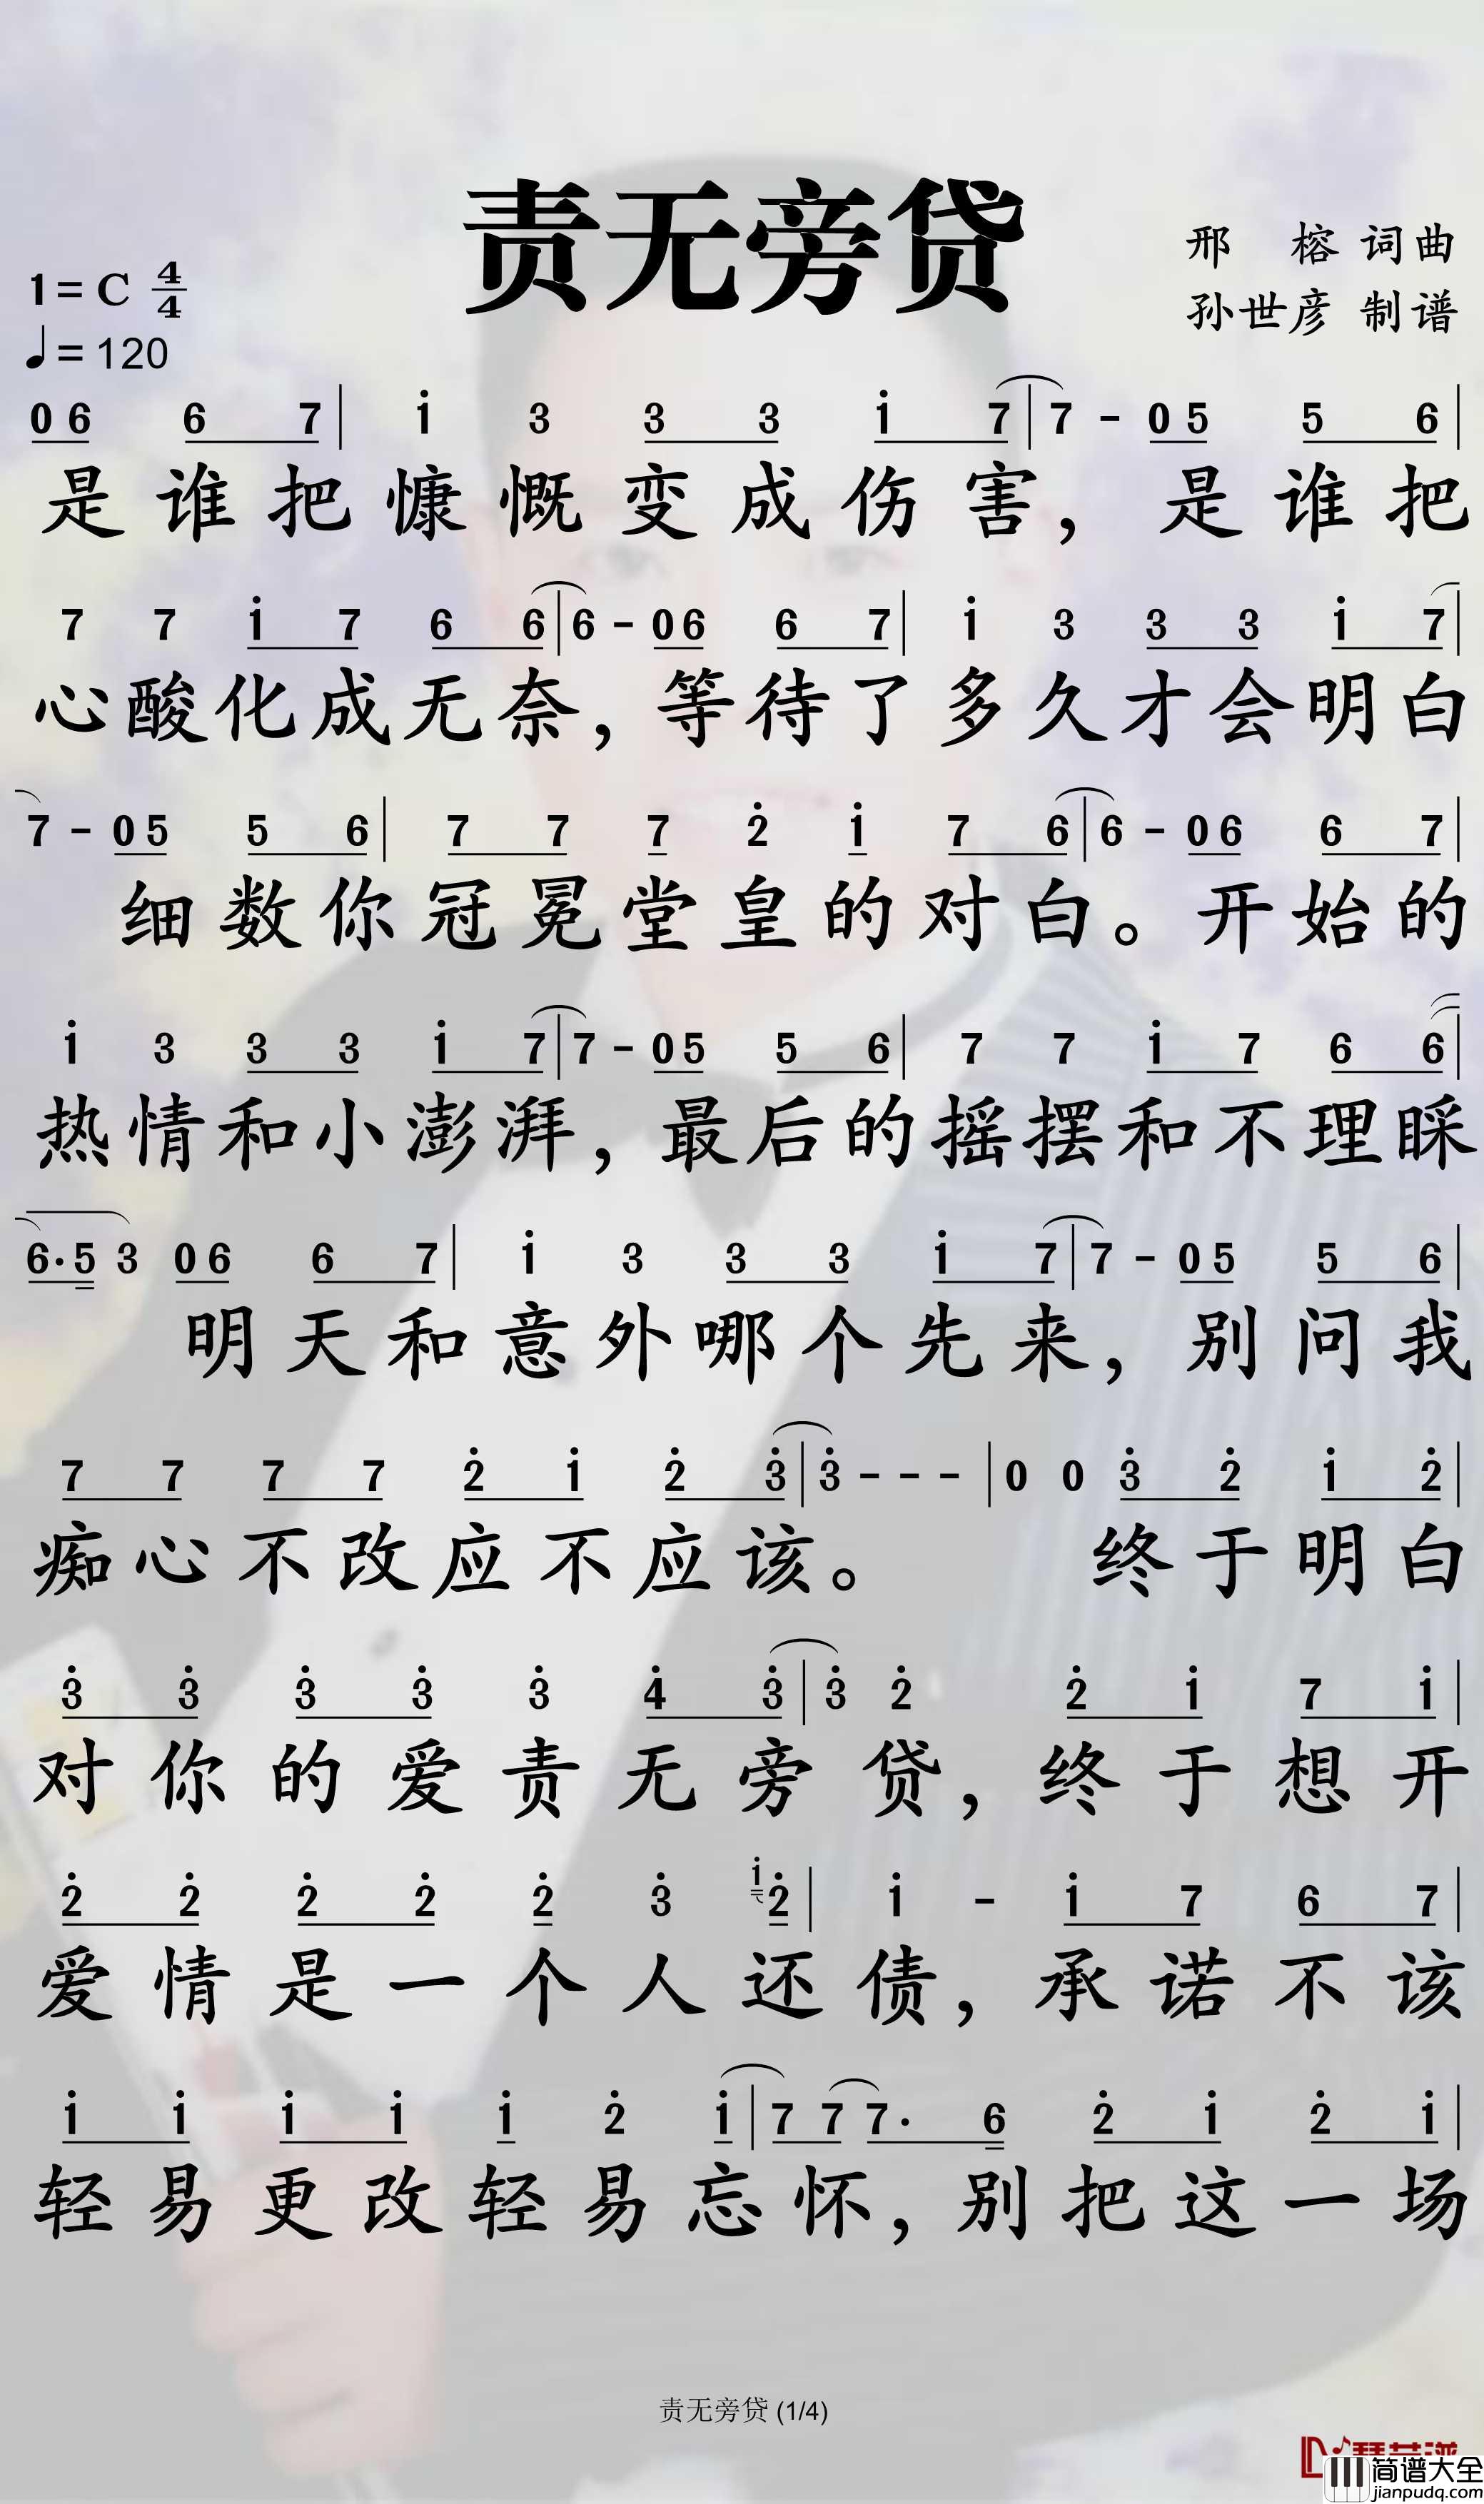 责无旁贷
邢 榕 词曲
孙世彦 制谱
1=C 4/4
♩=120
0 6 6 7 | i 3 3 3 i 7 | 7 - 0 5 5 6 |
是谁把慷慨变成伤害，是谁把
7 7 i 7 6 6 | 6 - 0 6 6 7 | i 3 3 3 i 7 |
心酸化成无奈，等待了多久才会明白
7 - 0 5 5 6 | 7 7 7 2̇ i 7 6 | 6 - 0 6 6 7 |
细数你冠冕堂皇的对白。开始的
i 3 3 3 i 7 | 7 - 0 5 5 6 | 7 7 i 7 6 6 |
热情和小澎湃，最后的摇摆和不理睬
6· 5 3 0 6 6 7 | i 3 3 3 i 7 | 7 - 0 5 5 6 |
明天和意外哪个先来，别问我
7 7 7 7 2̇ i 2̇ 3̇ | 3̇ - - - | 0 0 3̇ 2̇ i 2̇ |
痴心不改应不应该。终于明白
3̇ 3̇ 3̇ 3̇ 3̇ 4̇ 3̇ | 3̇ 2̇ 2̇ i 7 i |
对你的爱责无旁贷，终于想开
2̇ 2̇ 2̇ 2̇ 2̇ 3̇ i 2̇ | i - i 7 6 7 |
爱情是一个人还债，承诺不该
i i i i i 2̇ i | 7 7 7· 6 2̇ i 2̇ i |
轻易更改轻易忘怀，别把这一场
责无旁贷 (1/4)
简谱大全
jianpudq.com